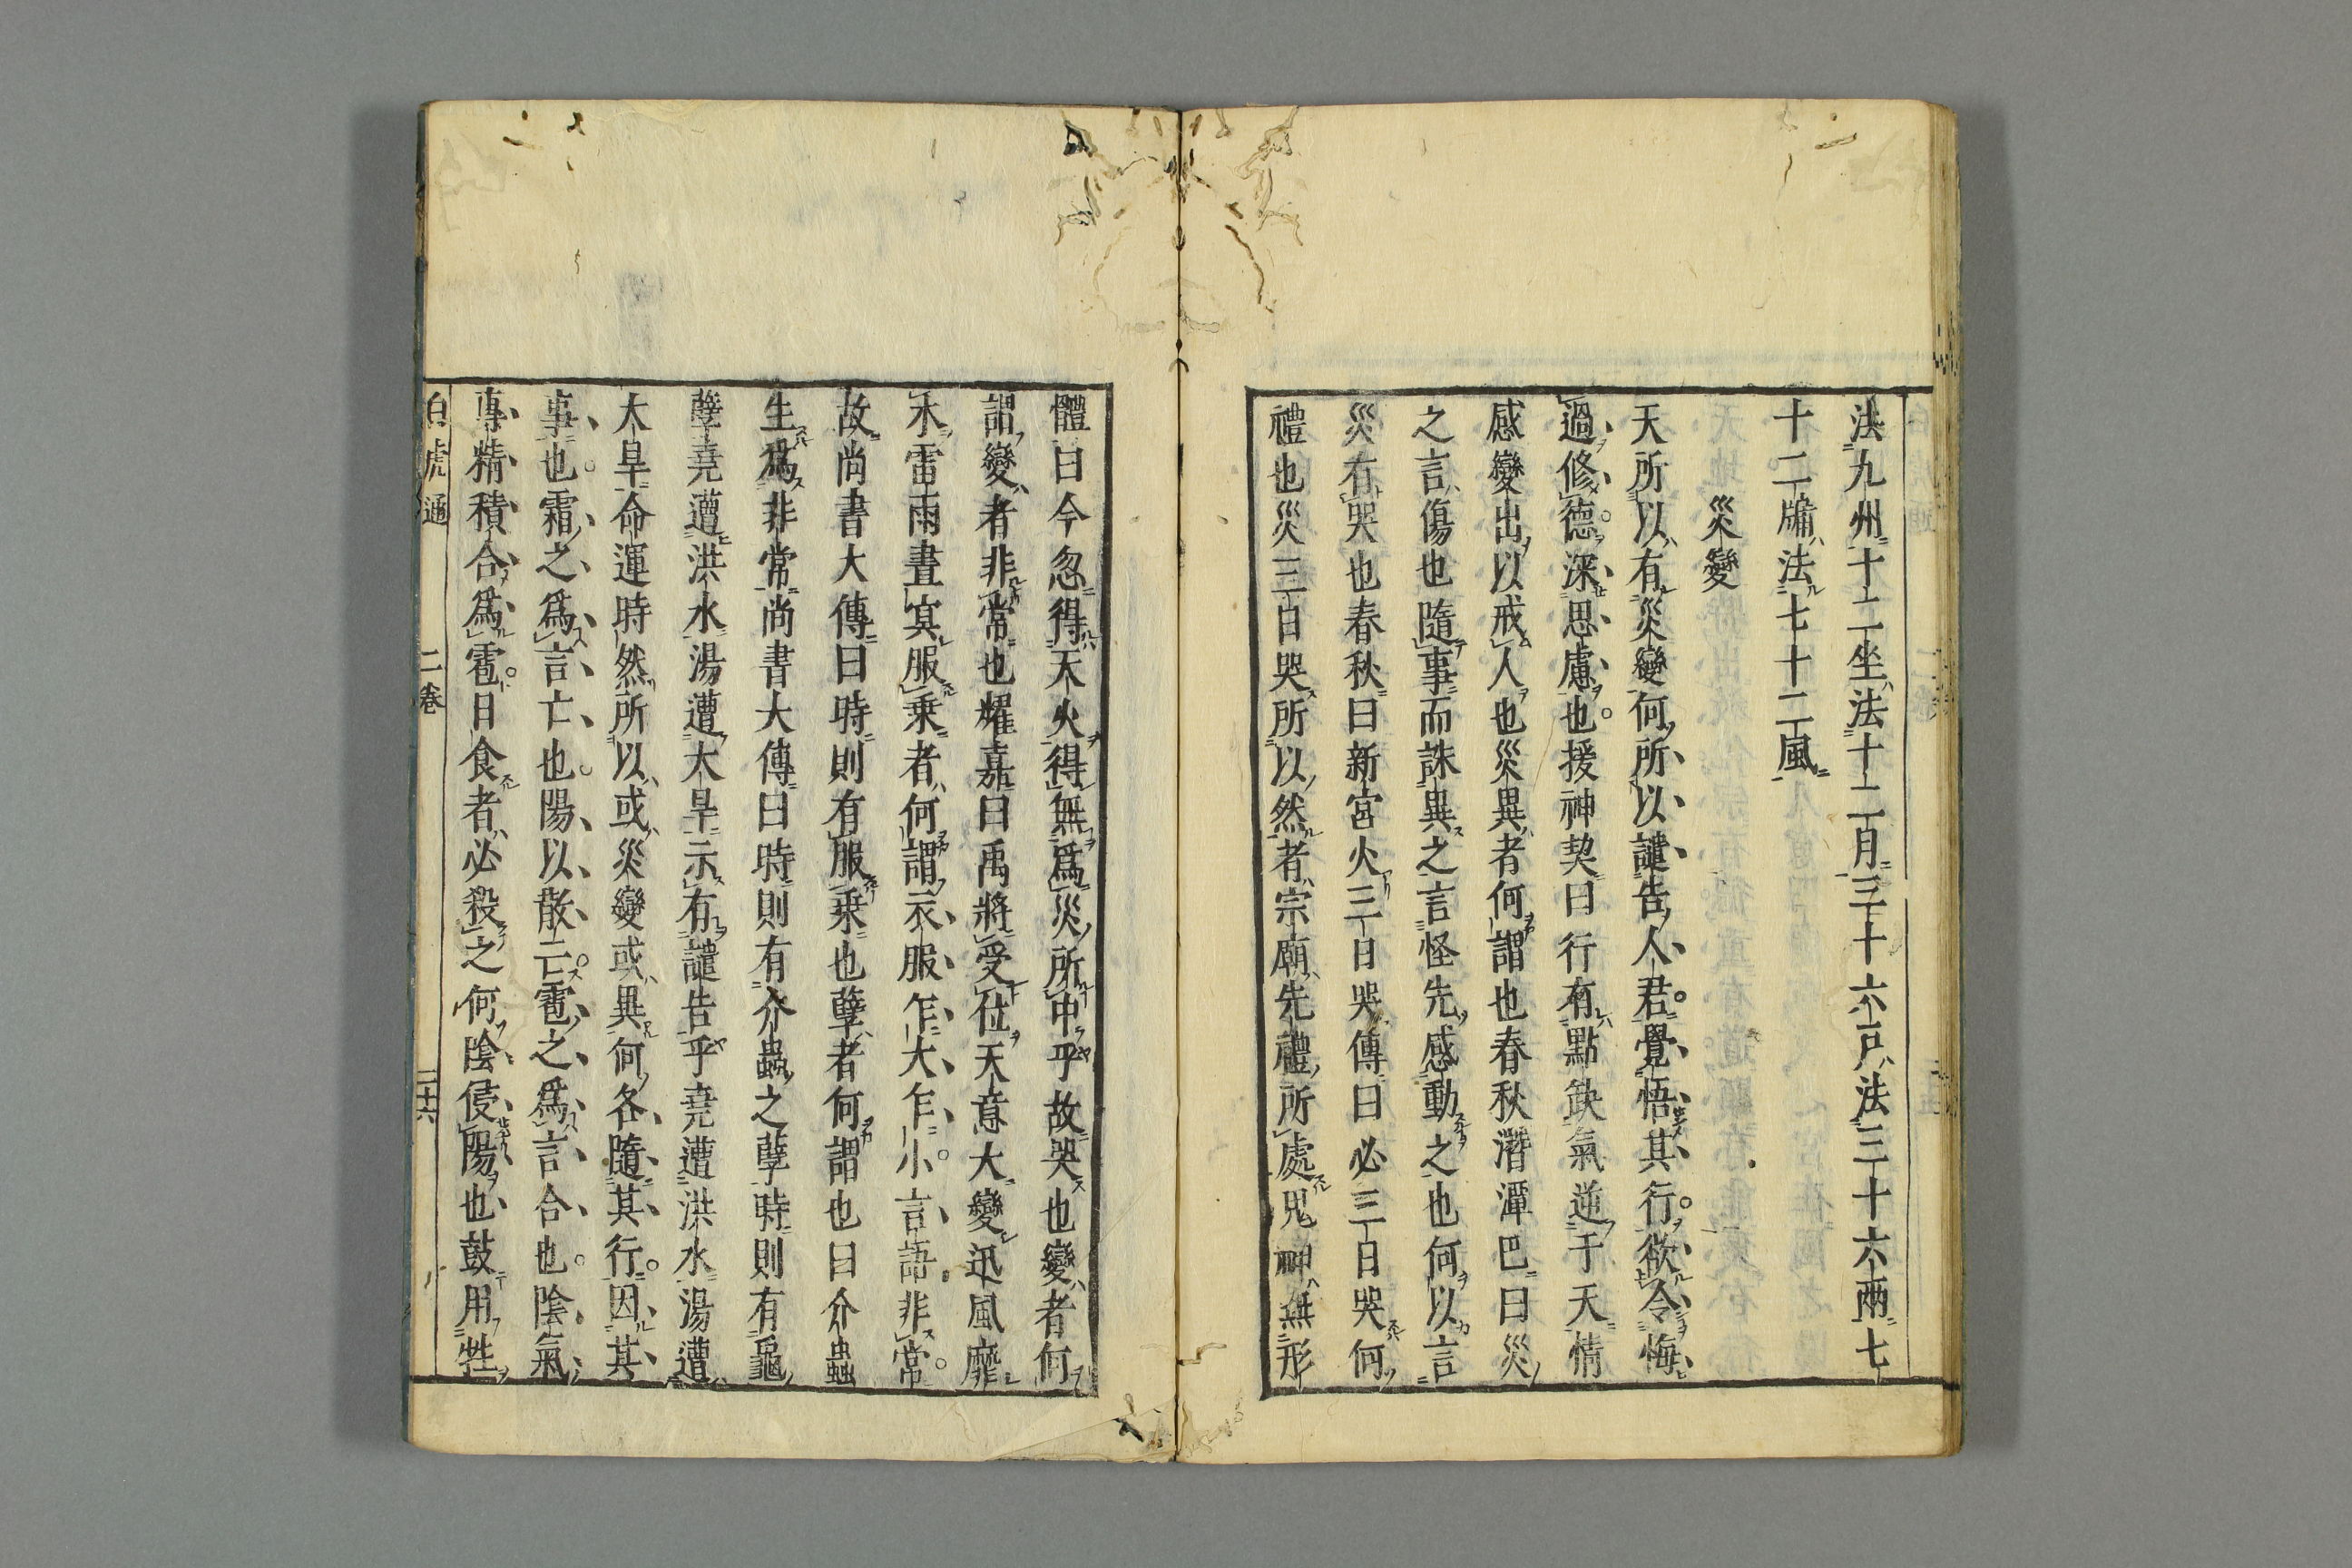 法九州十二坐法十二月三十六戸法三十六兩七
十二牖法七十二風
災變
天所以有災變何所以譴告人君覺悟其行欲令悔
過修德深思慮也援神契曰行有點缺氣逆于天情
感變出以戒人也災異者何謂也春秋潛潭巴曰災
之言傷也隨事而誅異之言怪先感動之也何以言
災有哭也春秋曰新宮火三日哭傳曰必三日哭何
禮也災三日哭所以然者宗廟先禮所處鬼神無形
體曰今忽得天火得無爲災所中乎故哭也變者何
謂變者非常也耀嘉曰禹將受位天意大變迅風靡
木雷雨晝冥服乗者何謂衣服乍大乍小言語非常
故尚書大傳曰時則有服乗也孽者何謂也曰介蟲
生爲非常尚書大傳曰時則有介蟲之孽時則有龜
孽堯遭洪水湯遭大旱示有譴告乎堯遭洪水湯遭
大旱命運時然所以或災變或異何各隨其行因其
事也霜之爲言亡也陽以散亡雹之爲言合也陰氣
專精積合爲雹日食者必殺之何陰侵陽也鼓用牲
白虎通 二卷 二十六